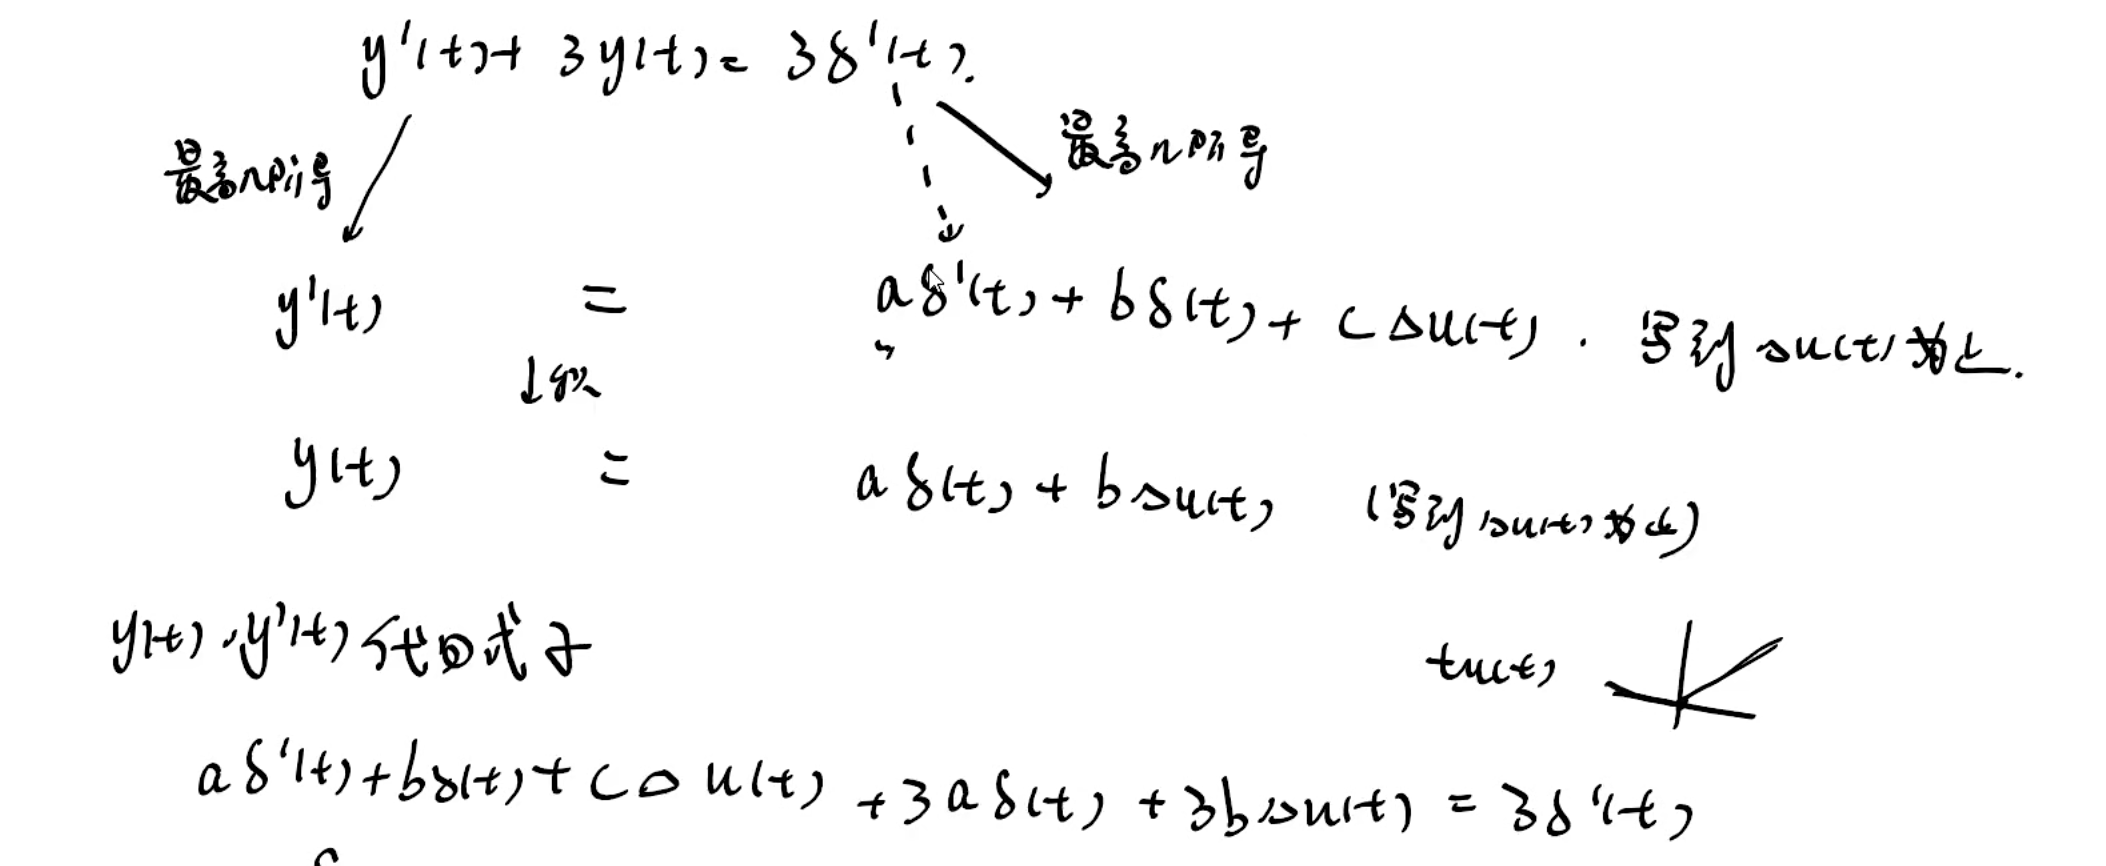 y'(t)+3y(t)=3δ'(t).
最高n阶导
最高n阶导
y'(t) = aδ'(t)+bδ(t)+cΔu(t). 写到Δu(t)为止.
↓积
y(t) = aδ(t)+bΔu(t) (写到Δu(t)为止)
y(t),y'(t)代回式子
tu(t)
aδ'(t)+bδ(t)+cΔu(t)+3aδ(t)+3bΔu(t)=3δ'(t)